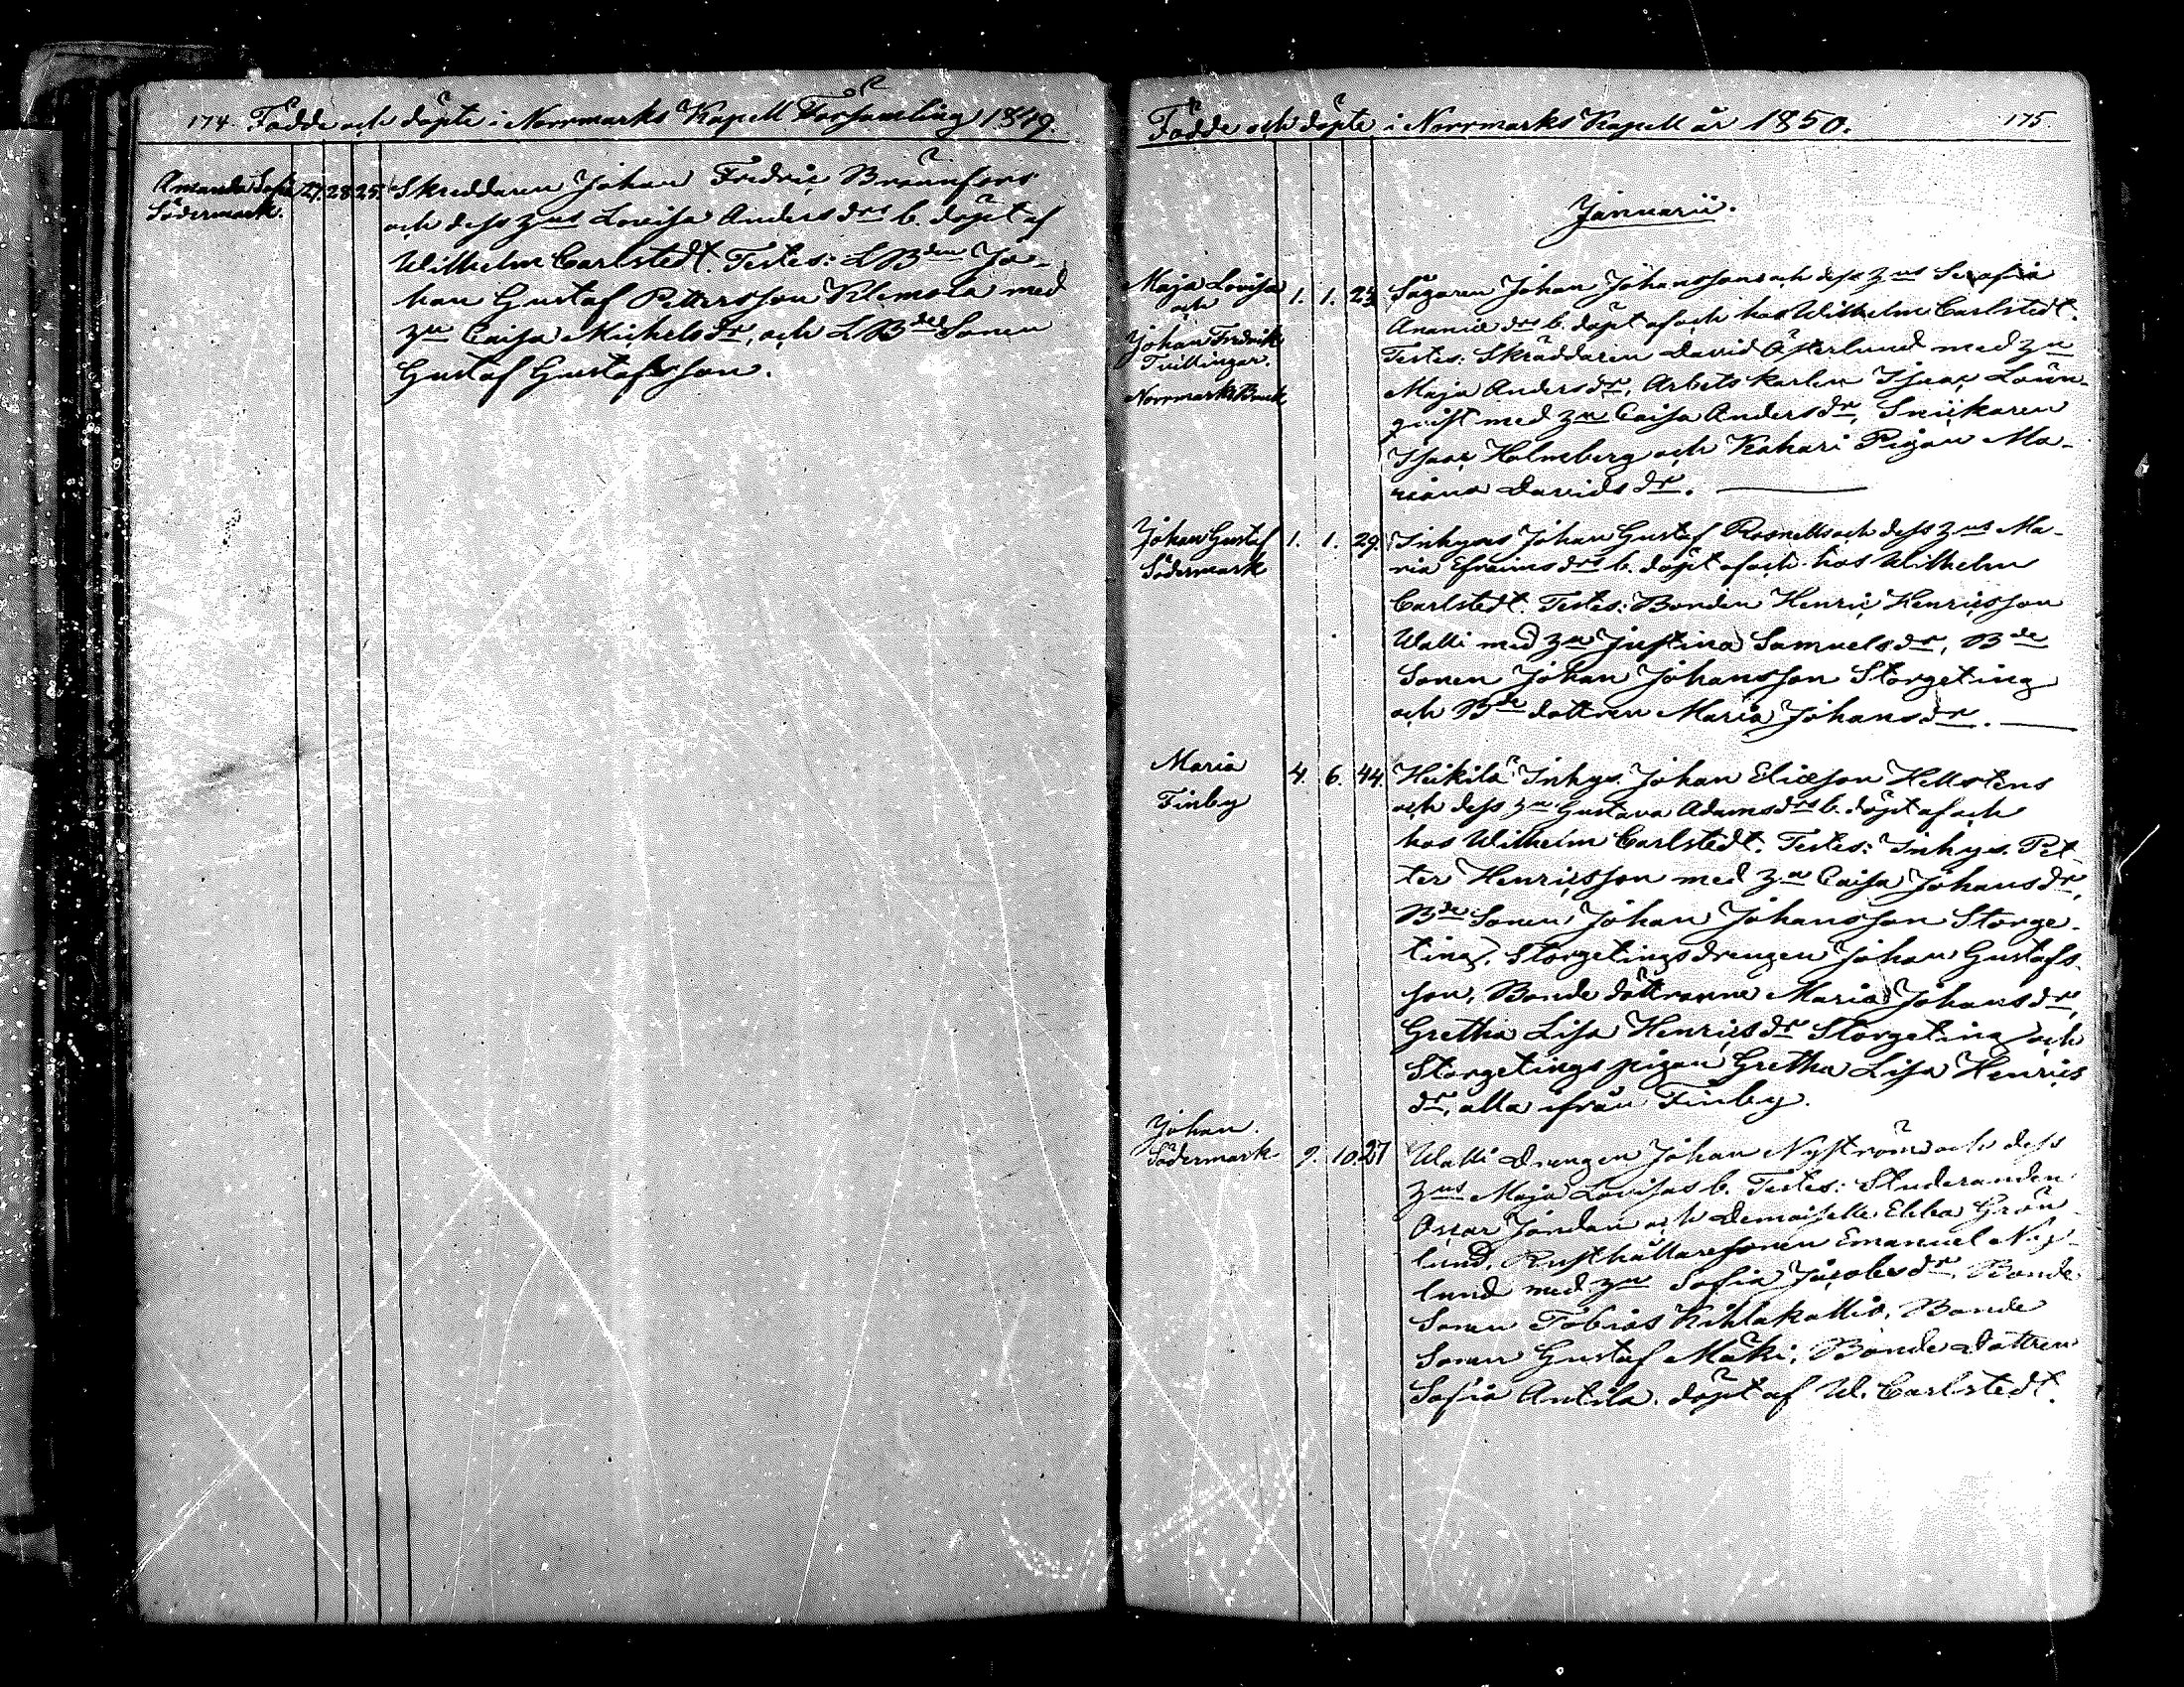 174. Födde och döpte i Norrmarks Kapell Församling 1849.
Amanda Sofia 27. 28. 25. Skreddaren Johan Fredric Braunfors
Södermark. och dess hus Lovisa Anders drs b. döpt af
Wilhelm Carlstedt. Testes: LBden Jo-
han Gustaf Pettersson Klemola med
hu Caisa Michels dr, och LBde Sonen
Gustaf Gustafsson.
Födde och döpte i Norrmarks Kapell år 1850. 175.
Januarii.
Maja Lovisa 1. 1. Sågaren Johan Johanssons och dess hus Serafia
och Ananie drs b. döpt af och hos Wilhelm Carlstedt.
Johan Fredrik Testes: Skräddaren David Österlund med hu
Tvillingar. Maja Anders dr, Arbets karlen Isaac Löun-
Norrmarks Bruk qvist med hu Caisa Anders dr, Snickaren
Isaac Holmberg och Kahari Pigan Ma-
riana Davids dr.
Johan Gustaf 1. 1. 29. Inhyses Johan Gustaf Rosnells och dess hus Ma-
Södermark ria Efraims drs b. döpt af och hos Wilhelm
Carlstedt. Testes: Bonden Henric Henricsson
Walli med hu Justina Samuels dr, Bde
Sonen Johan Johansson Storgeting
och Bde dottren Maria Johans dr.
Maria 4. 6. 44. Heikilä Inhys. Johan Eliæson Hellstens
Finby och dess hu Gustava Adams drs b. döpt af och
hos Wilhelm Carlstedt. Testes: Inhys. Pet-
ter Henricsson med hu Caisa Johans dr,
Bde Sonen Johan Johansson Storge-
ting, Storgetings drengen Johan Gustafs-
son, Bonde döttrarne Maria Johans dr,
Gretha Lisa Henrics dr Storgeting och
Storgetings pigan Gretha Lisa Henrics
dr, alla ifrån Finby.
Johan.
Södermark 9. 10. 27 Walli Drengen Johan Nyströms och dess
hus Maja Lovisas b. Testes: Studeranden
Oscar Jordan och Demoiselle Ebba Grön-
lund, Rusthållaresonen Emanuel Ny-
lund med hu Sofia Jacobs dr, Bonde
Sonen Tobias Kihlakallio, Bonde
Sonen Gustaf Mäki, Bonde dottren
Sofia Antila. döpt af W. Carlstedt.